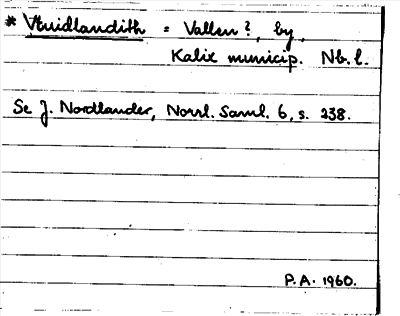 * Vtuidlandith = Vallen?, by,
Kalix municip. Nb. l.
Se J. Nordlander, Norrl. Saml. 6, s. 238.
P.A. 1960.